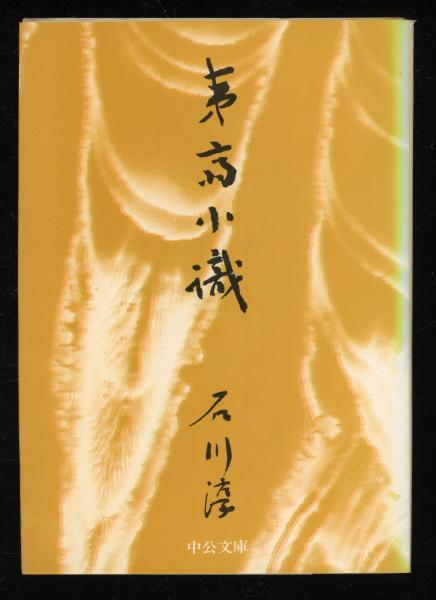 夷斎小識
石川淳
中公文庫